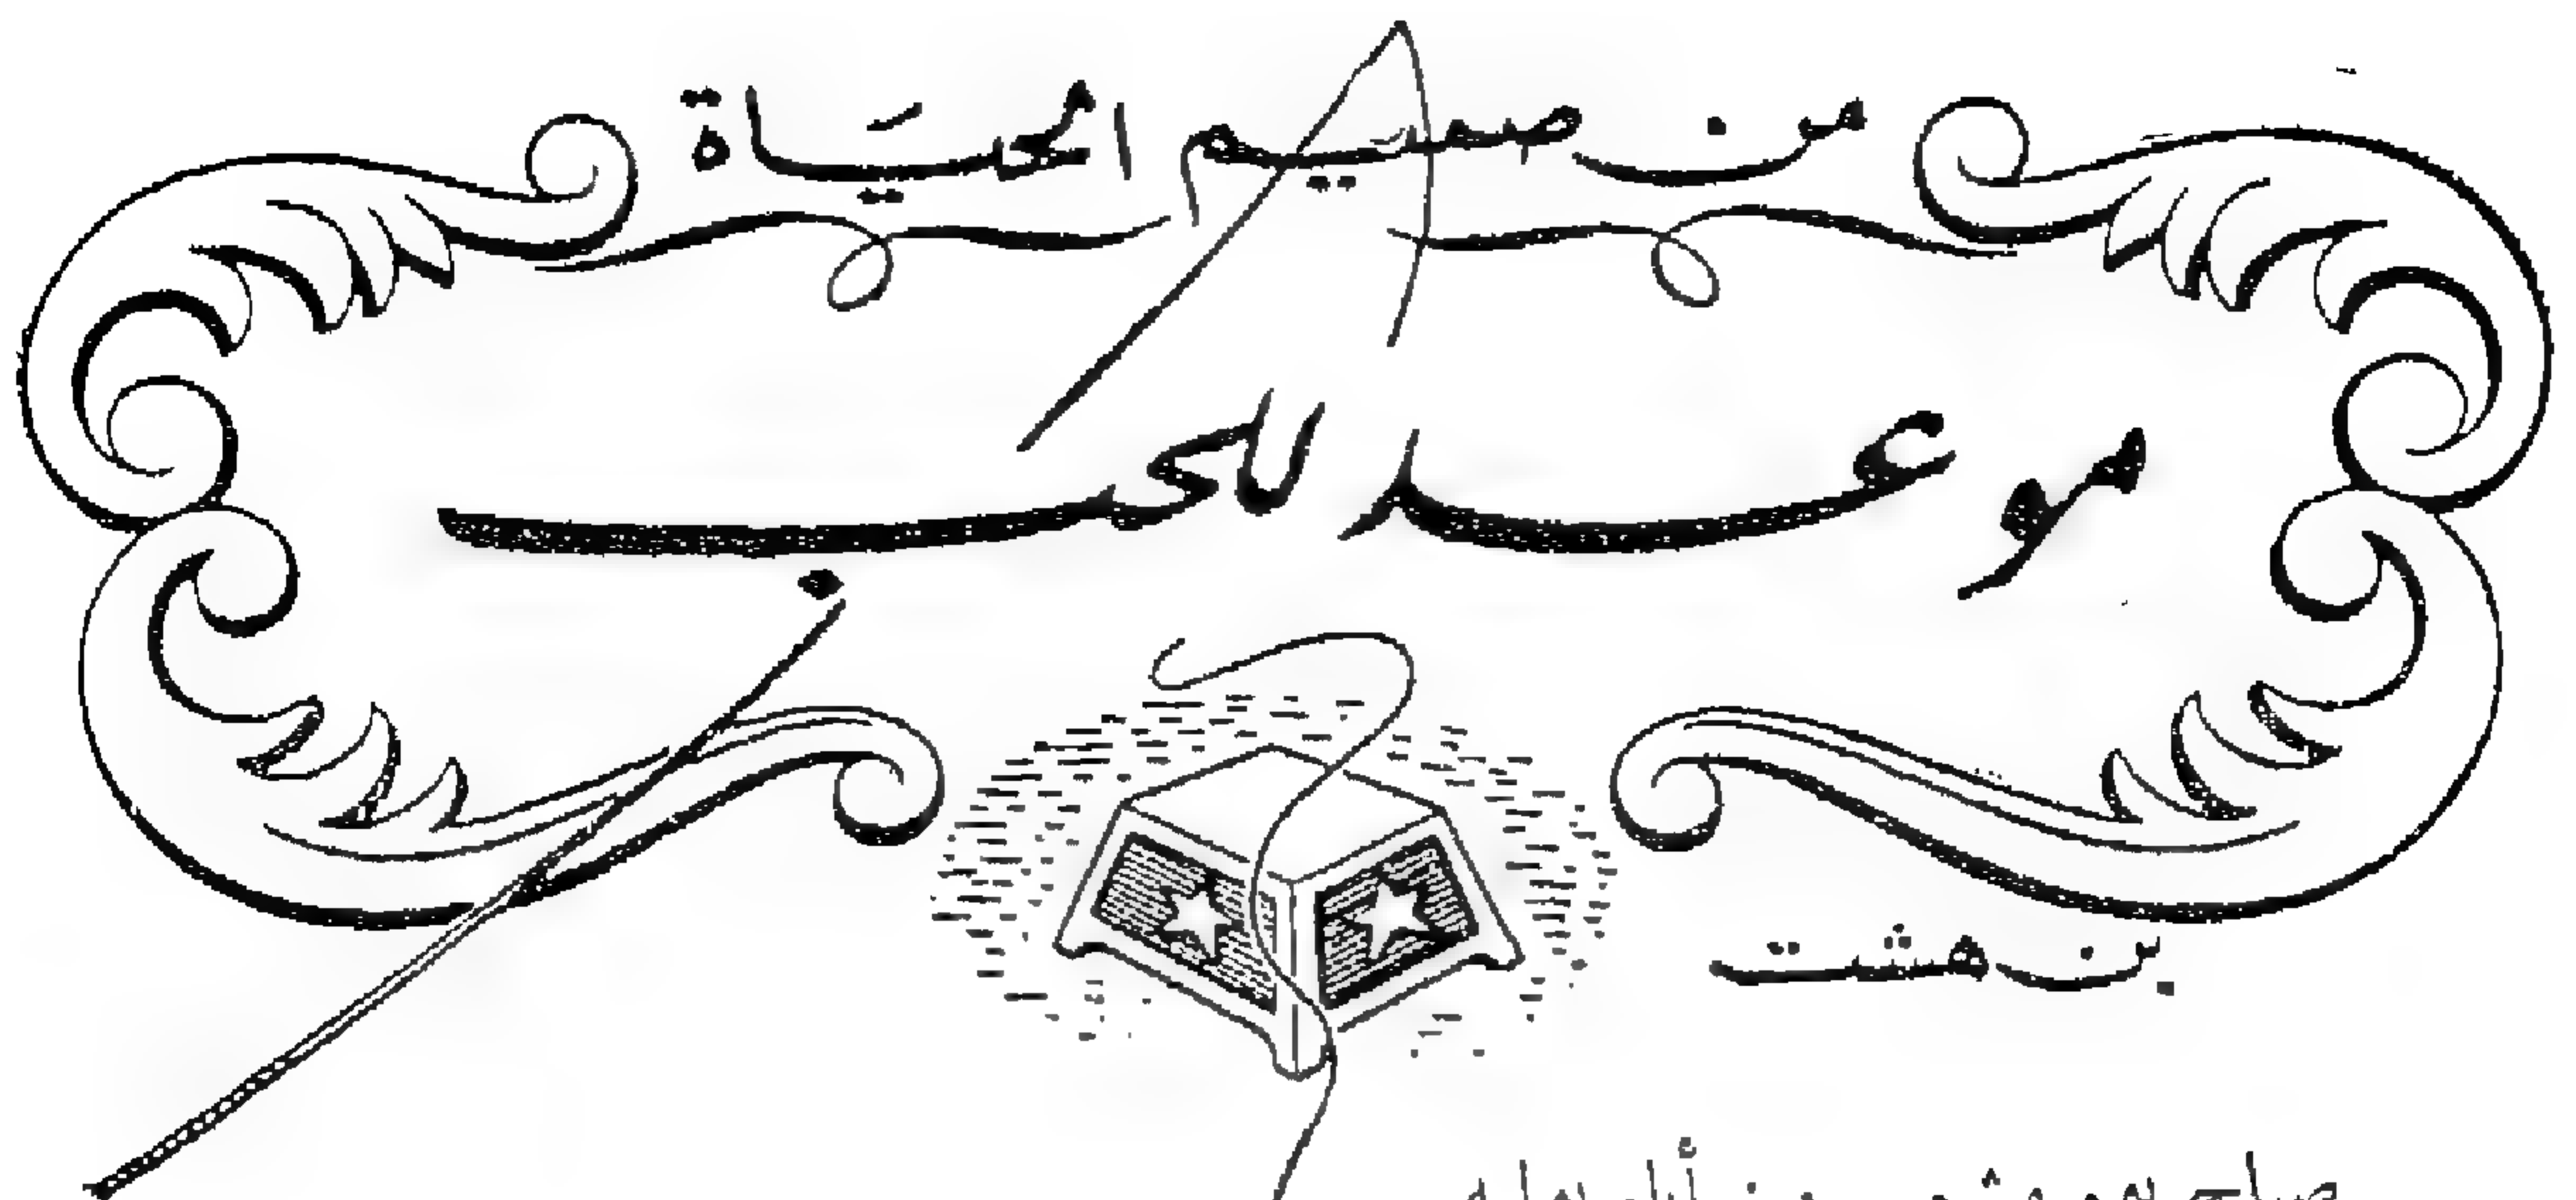 من صميم الحياة
موعد للحب
بن هشت